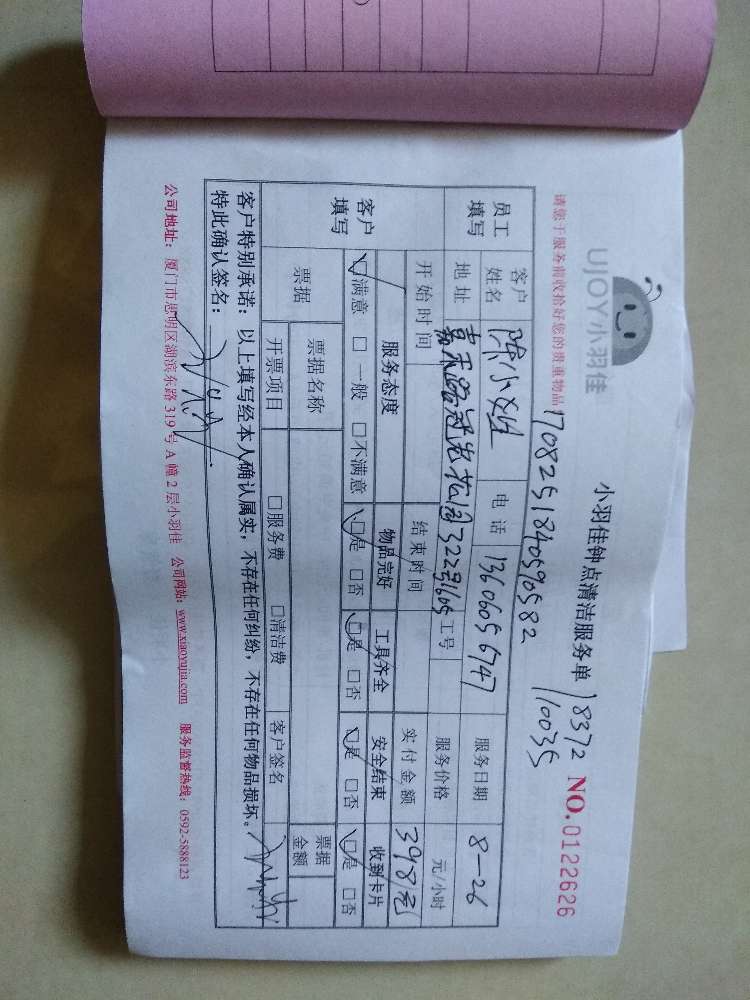 UJOY小羽佳
小羽佳钟点清洁服务单
18372
110035
NO.0122626
请您于服务前收拾好您的贵重物品
170825184059582
员工填写
客户姓名 陈小姐 电话 13606056747 服务日期 8-26
地址 嘉禾路冠宏花园322号1605 工号 服务价格 元/小时
开始时间 结束时间 实付金额 398元
客户填写
服务态度 物品完好 工具齐全 安全结束 收到卡片
☑满意 □一般 □不满意 ☑是 □否 ☑是 □否 ☑是 □否 ☑是 □否
票据 票据名称 客户签名 票据金额
开票项目 □服务费 □清洁费
客户特别承诺：以上填写经本人确认属实，不存在任何纠纷，不存在任何物品损坏。
特此确认签名：
公司地址：厦门市思明区湖滨东路319号A幢2层小羽佳 公司网站：www.xiaoyujia.com 服务监督热线：0592-5888123